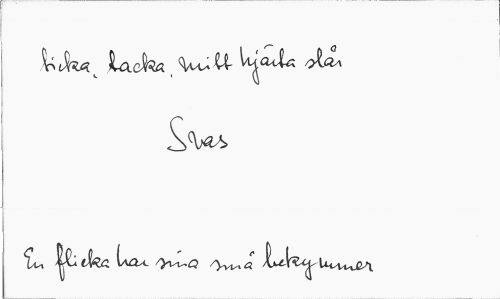 ticka, tacka, mitt hjärta slår
Svas
En flicka har sina små bekymmer